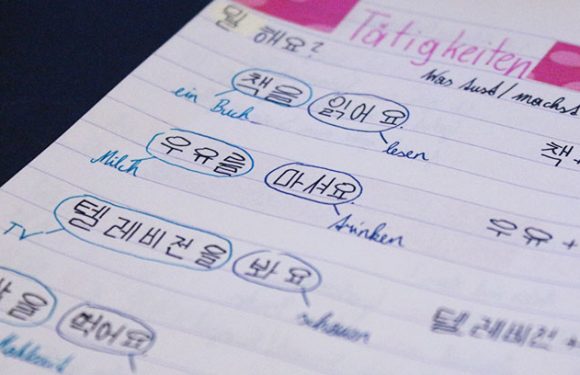 뭘 해요? Tätigkeiten
Was tust/machst
책을 읽어요 책
ein Buch lesen
우유를 마셔요 우유 +
Milch trinken
텔레비전을 봐요 텔레비전 +
TV schauen
을 먹어요